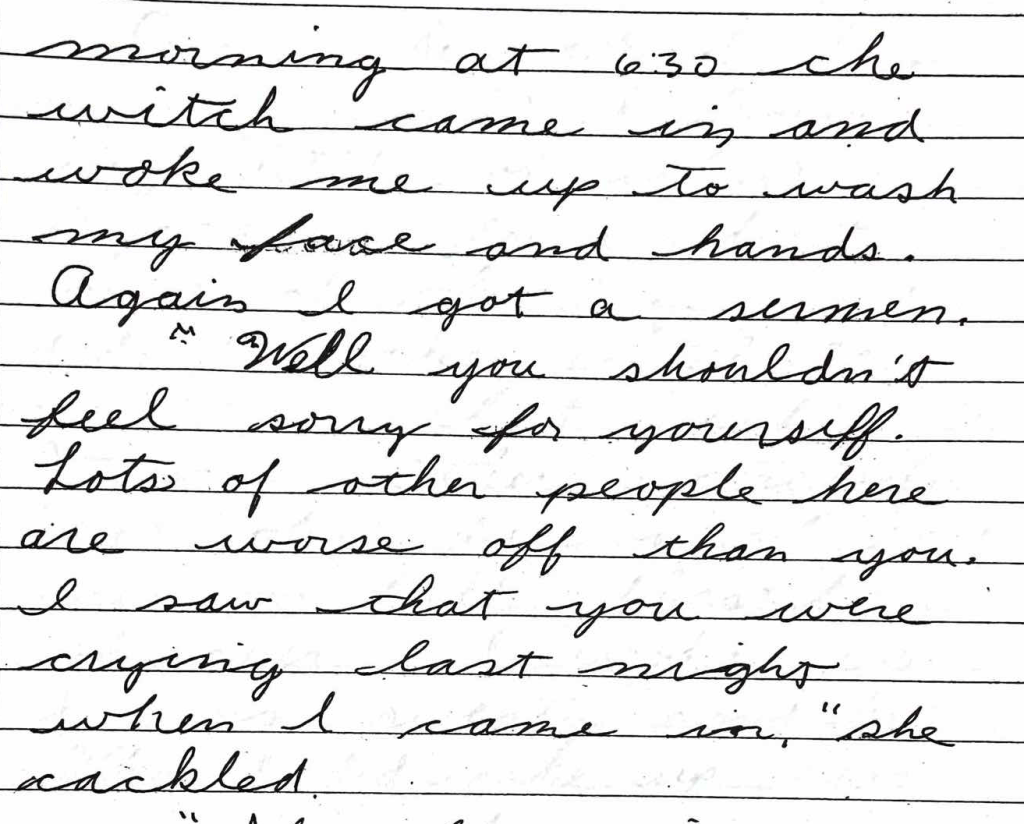 morning at 6:30 the
witch came in and
woke me up to wash
my face and hands.
Again I got a sermen.
"Well you shouldn't
feel sorry for yourself.
Lots of other people here
are worse off than you.
I saw that you were
crying last night
when I came in," she
cackled.